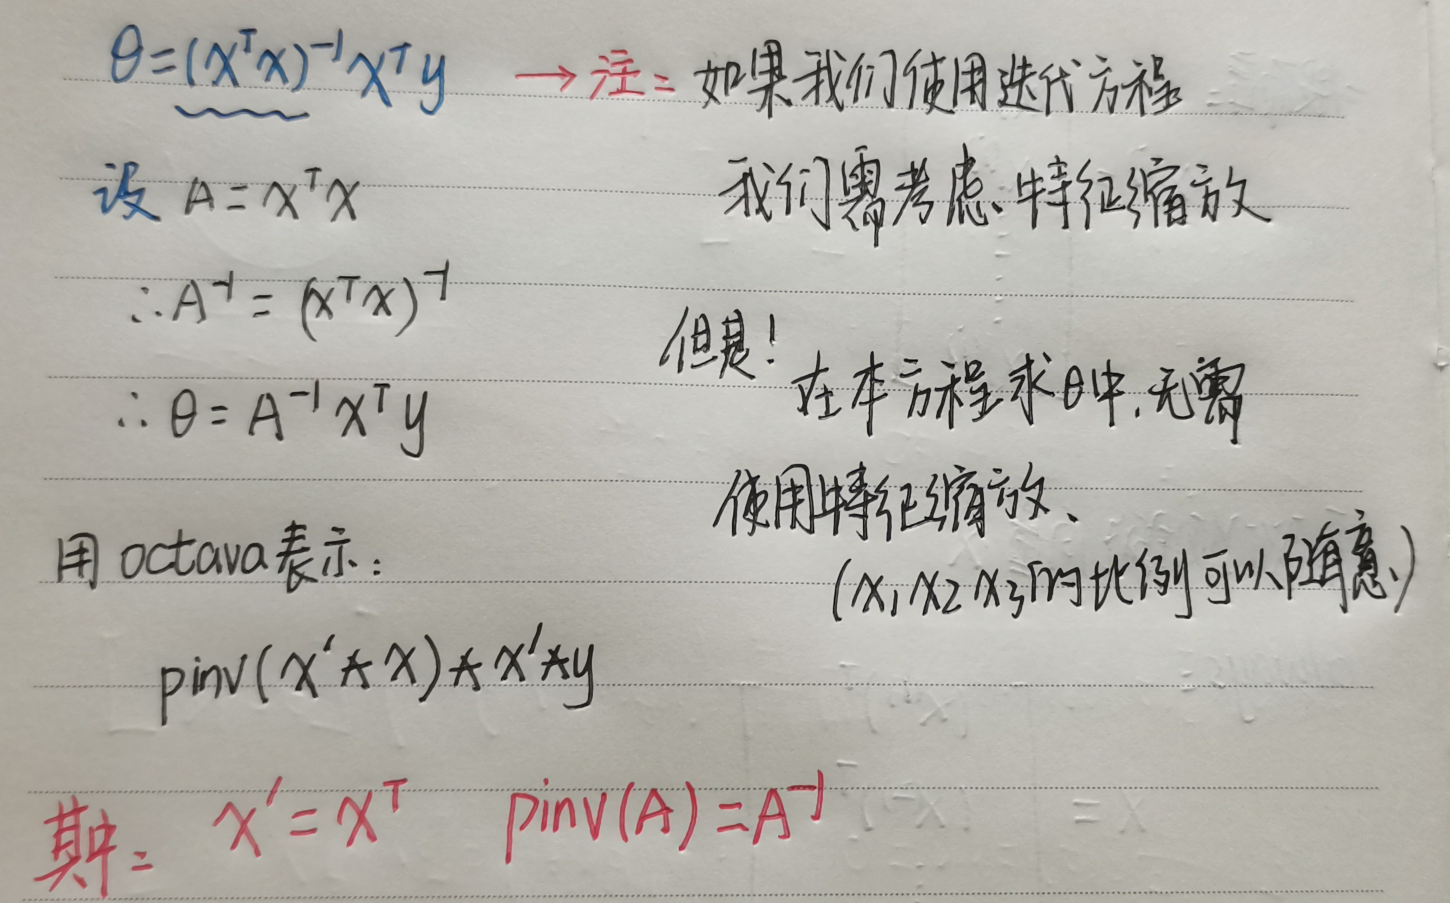 θ=(xᵀx)⁻¹xᵀy → 注: 如果我们使用迭代方程
我们需考虑特征缩放
设 A=xᵀx
∴A⁻¹=(xᵀx)⁻¹
∴θ=A⁻¹xᵀy
但是!
在本方程求θ中,无需
使用特征缩放、
(x₁ x₂ x₃的比例可以随意)
用octava表示:
pinv(x'*x)*x'*y
其中: x'=xᵀ pinv(A)=A⁻¹